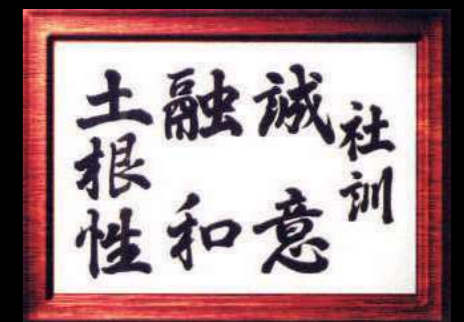 社訓
誠意
融和
土根性